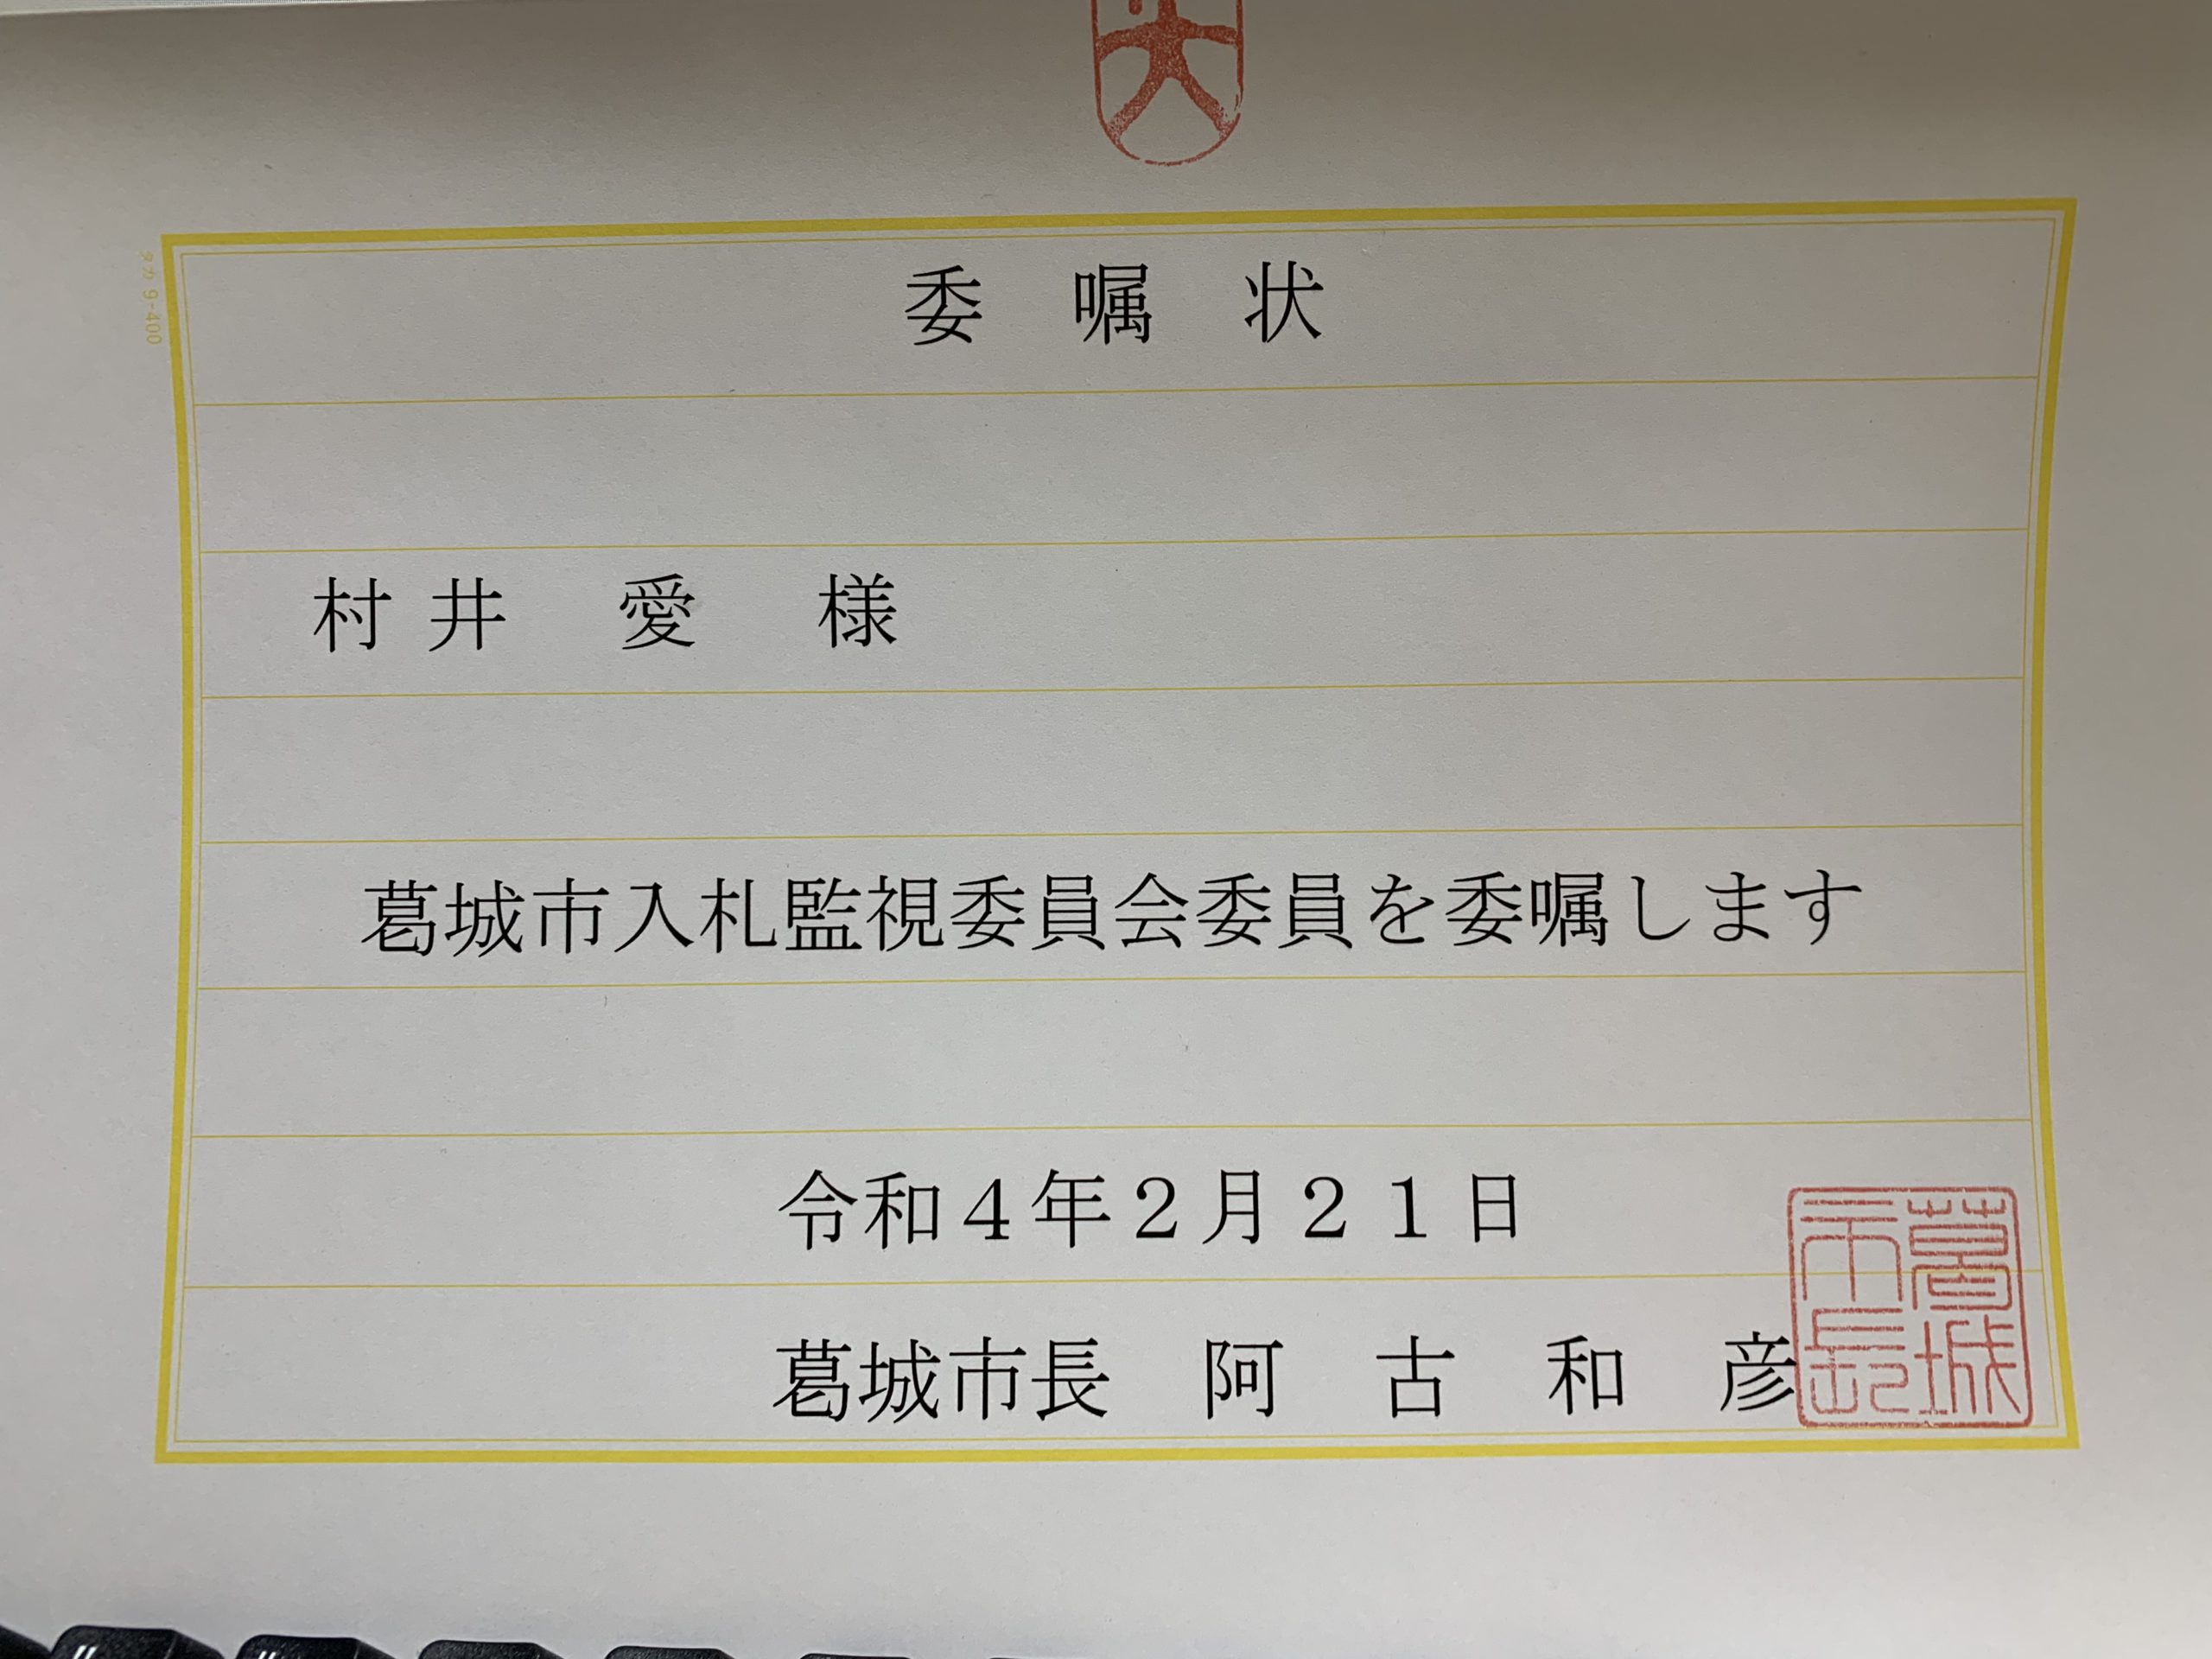 タカ 9-400
委 嘱 状
村 井 愛 様
葛城市入札監視委員会委員を委嘱します
令和４年２月２１日
葛城市長 阿 古 和 彦
葛城
市長